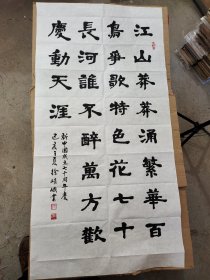 江山莽莽涌繁華百
鳥爭歌特色花七十
長河誰不醉萬方歡
慶動天涯
新中國成立七十周年慶